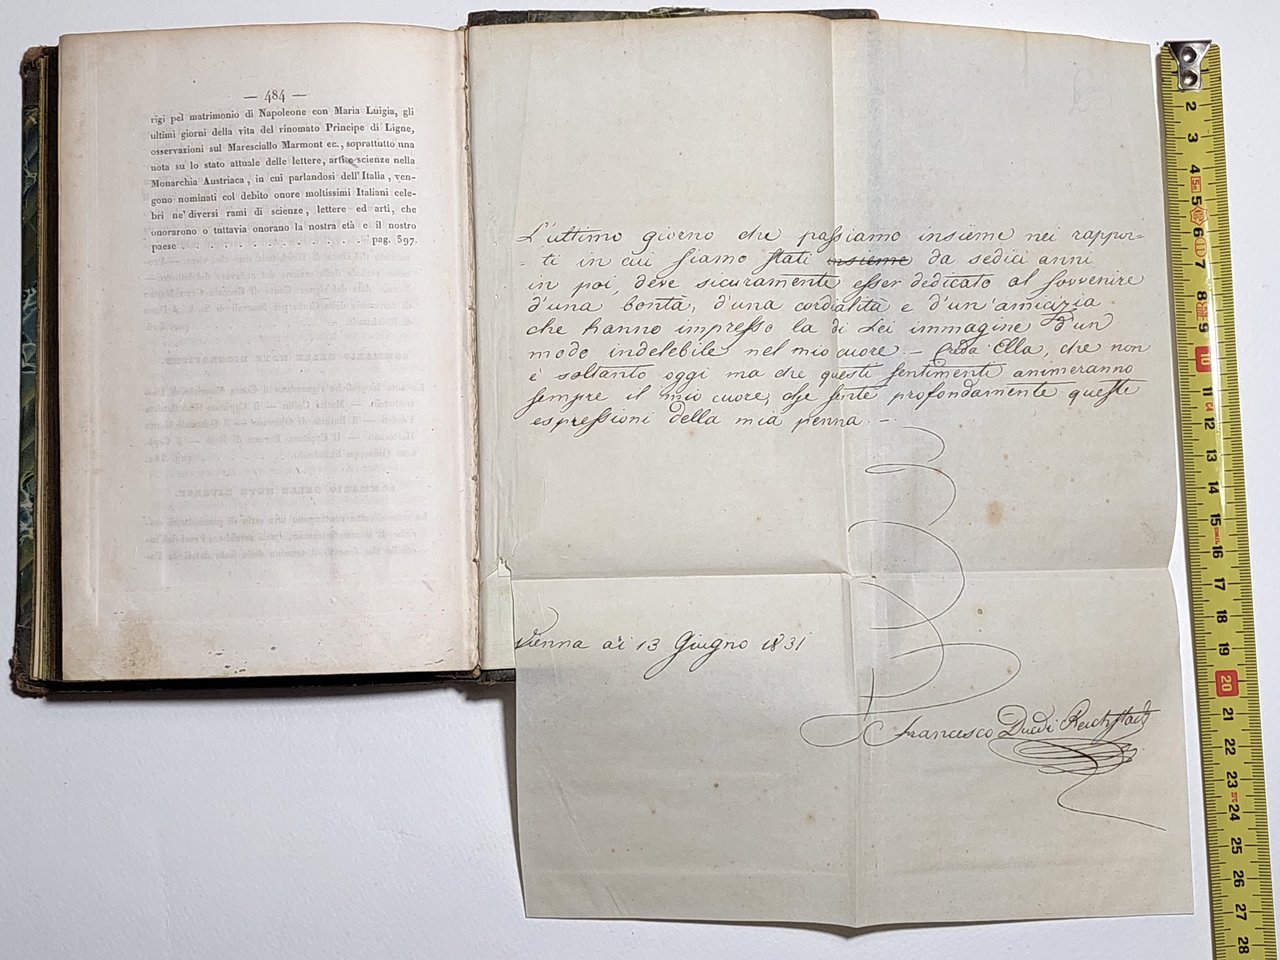 — 484 —
rigi pel matrimonio di Napoleone con Maria Luigia, gli
ultimi giorni della vita del rinomato Principe di Ligne,
osservazioni sul Maresciallo Marmont ec., soprattutto una
nota su lo stato attuale delle lettere, arti e scienze nella
Monarchia Austriaca, in cui parlandosi dell'Italia, ven-
gono nominati col debito onore moltissimi Italiani cele-
bri ne' diversi rami di scienze, lettere ed arti, che
onorarono o tuttavia onorano la nostra età e il nostro
paese . . . . . . . . . . . . . . . pag. 397.
L'ultimo giorno che passiamo insieme nei rappor-
- ti in cui siamo stati insieme da sedici anni
in poi, deve sicuramente esser dedicato al sovvenire
d'una bontà, d'una cordialità e d'un'amicizia
che hanno impresso la di Lei immagine d'un
modo indelebile nel mio cuore. - Creda Ella, che non
è soltanto oggi ma che questi sentimenti animeranno
sempre il mio cuore, che sente profondamente queste
espressioni della mia penna. -
Vienna ai 13 Giugno 1831
Francesco Duca di Reichstadt
1
2
3
4
5
6
7
8
9
10
11
12
13
14
15
16
17
18
19
20
21
22
23
24
25
26
27
28